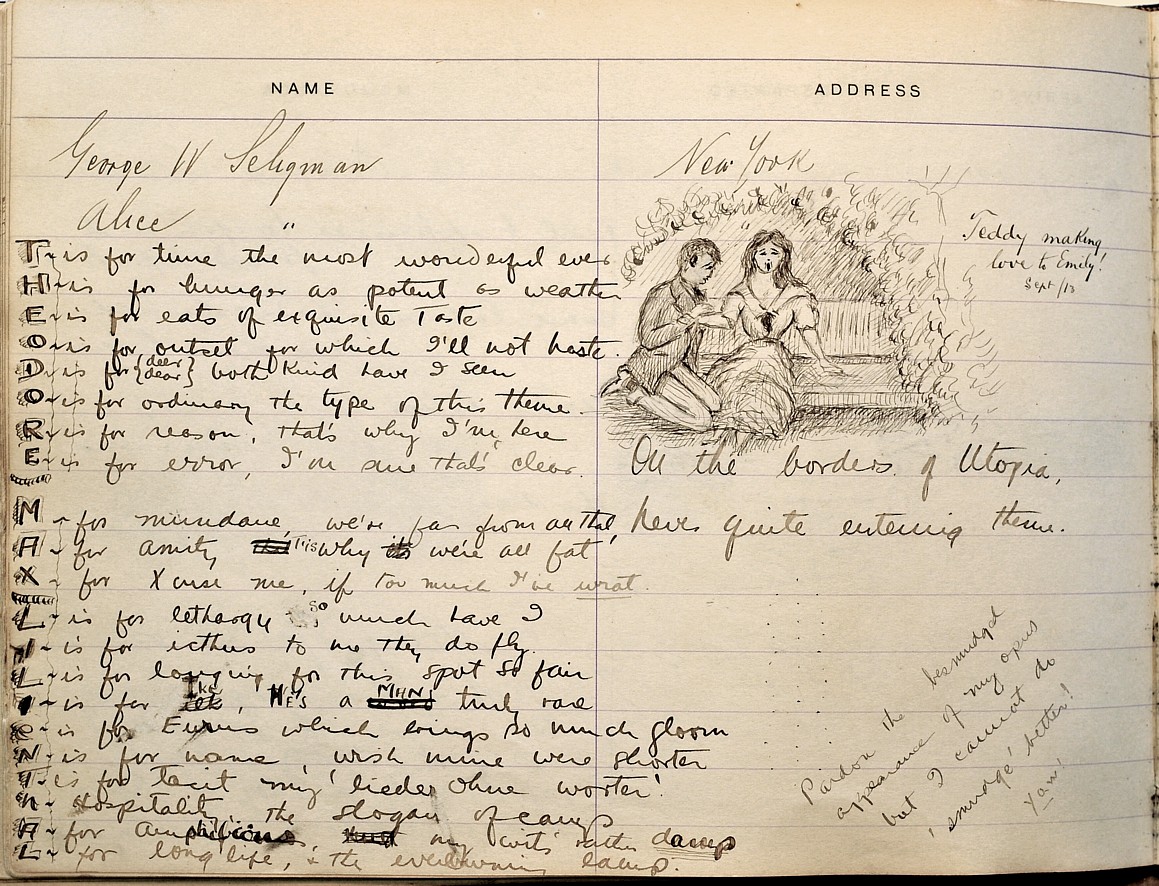 NAME
ADDRESS
George W Seligman
New York
Alice "
Teddy making
love to Emily!
Sept/13
T - is for time the most wonderful ever
H - is for hunger as potent as weather
E - is for eats of exquisite Taste
O - is for outset for which I'll not haste.
D - is for {deer dear} both kind have I seen
O - is for ordinary the type of this theme.
R - is for reason, that's why I'm here
E - is for error, I'm sure that's clear.
On the borders of Utopia,
Never quite entering theme.
M - for mundane, we're far from all that,
A - for amity, 'Tis why we're all fat
X - for Xcuse me, if too much I've wrat.
L - is for lethargy so much have I
I - is for icthus to me they do fly.
L - is for longing for this spot so fair
I - is for Ike, He's a MAN truly rare
E - is for which brings so much gloom
N - is for name, wish mine were shorter
T - is for tacit my 'lieder ohne worter'
H - Hospitality, the slogan of camp
A - for my wit's rather damp
L - for long life, & the everburning lamp.
Pardon the besmudged
appearance of my opus
but I cannot do
'smudge' better!